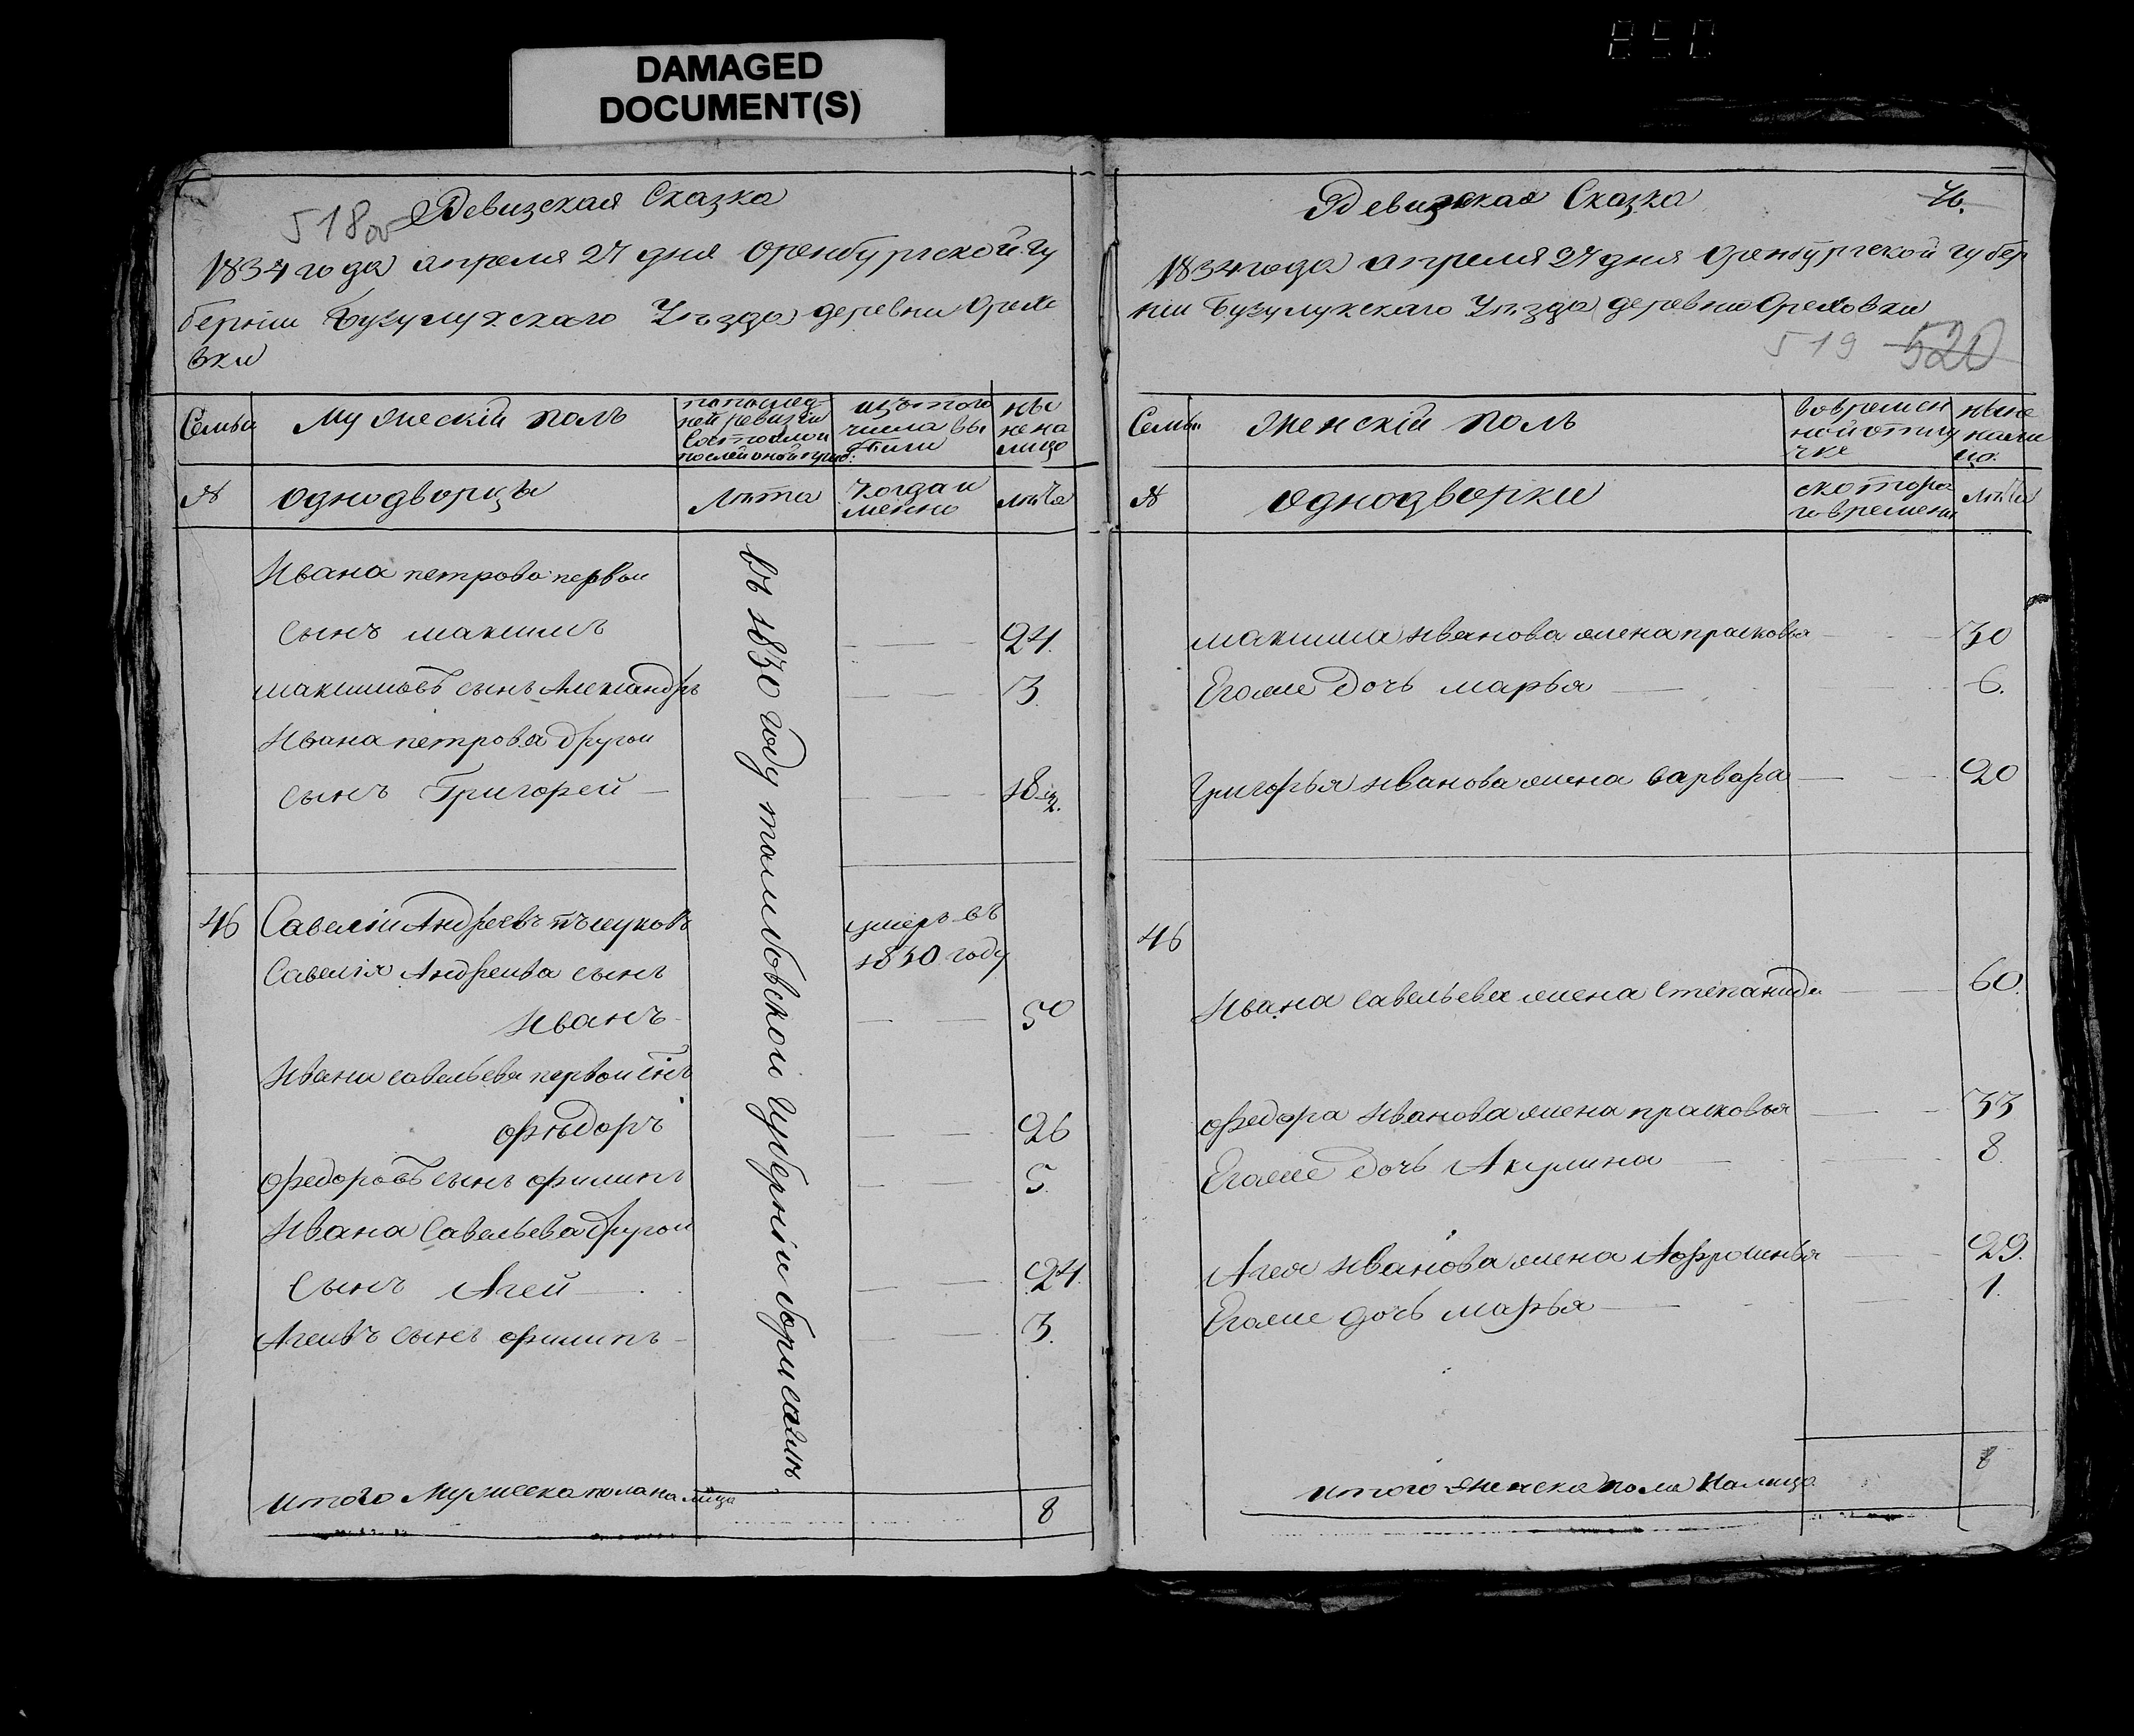 850
DAMAGED
DOCUMENT(S)
518об
Ревизская Сказка
1834 года апреля 27 дня Оренбургской гу
берніи Бузулукскаго Уѣзда деревни Орехо
вки
Семьи
мужескій полъ
по послед-
ней ревизіи
состояло и
после оной приб:
изъ того
числа вы
были
ны
не на
лицо
№
однодворцы
лѣта
когда и
менно
лѣта
Ивана петрова первои
сынъ максимъ
24.
максимовъ сынъ Александръ
3.
Ивана петрова другои
сынъ Григорей
18
въ 1830 году тамбовской губерніи
46
Савелій Андреевъ
умеръ въ
1830 году
Савелія Андреева сынъ
Иванъ
50
Ивана савельева первои снъ
Фѣдоръ
26
Федоровъ сынъ филипъ
5.
Ивана Савельева другои
сынъ Агей
24.
Агеивъ сынъ филипъ
3.
итого Мужеска пола на лицо
8
Ревизская Сказка
1834 года апреля 27 дня Оренбургской губер
ніи Бузулукскаго Уѣзда деревни Ореховки
519 520
Семьи
женскій полъ
во времен
ной отлу
чке
ныне
нали
цо.
№
однодворки
с котора
го времени
лѣта
максима Иванова жена прасковья
30
Егоже дочь марья
6.
Григорья Иванова жена варвара
20
46
Ивана савельева жена степанида
60.
Федора Иванова жена прасковья
33
Егоже дочь Акулина
8.
Агея Иванова жена Афросинья
29.
Егоже дочь марья
1.
итого женска пола налицо
8